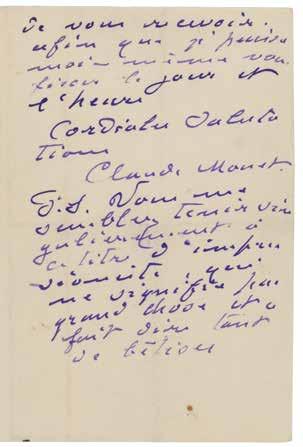 de vous revoir.
afin que je puisse
moi même vous
fixer le jour et
l'heure
Cordiales saluta
tions
Claude Monet.
P.S. Vous me
semblez tenir sin
gulièrement à
ce titre d'impres
sionniste, qui
ne signifie pas
grand chose et a
fait dire tant
de bêtises